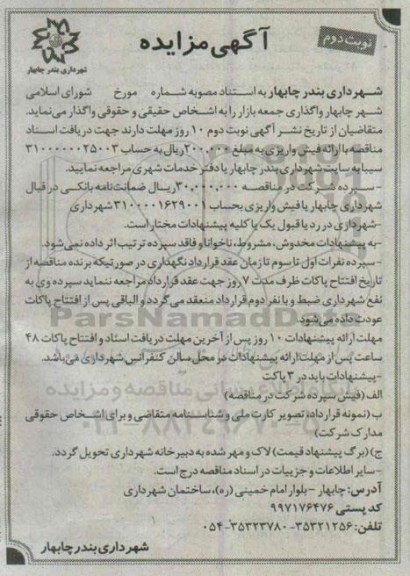 آگهی مزایده
نوبت دوم
شهرداری بندر چابهار
شهرداری بندر چابهار به استناد مصوبه شماره مورخ شورای اسلامی
شهر چابهار واگذاری جمعه بازار را به اشخاص حقیقی و حقوقی واگذار می‌نماید.
متقاضیان از تاریخ نشر آگهی نوبت دوم ۱۰ روز مهلت دارند جهت دریافت اسناد
مناقصه با ارائه فیش واریزی به مبلغ ۲۰۰،۰۰۰ ریال به حساب ۳۱۰۰۰۰۰۰۲۵۰۰۳
سیبا به سایت شهرداری بندر چابهار یا دفتر خدمات شهری مراجعه نمایید.
-سپرده شرکت در مناقصه ۳۰،۰۰۰،۰۰۰ ریال ضمانت‌نامه بانکی در قبال
شهرداری چابهار یا فیش واریزی بحساب ۳۱۰۰۰۰۱۶۲۹۰۰۱ شهرداری
-شهرداری در رد یا قبول یک یا کلیه پیشنهادات مختار است.
-به پیشنهادات مخدوش، مشروط، ناخوانا و فاقد سپرده ترتیب اثر داده نمی‌شود.
-سپرده نفرات اول تا سوم تا زمان عقد قرارداد نگهداری در صورتیکه برنده مناقصه از
تاریخ افتتاح پاکات ظرف مدت ۷ روز جهت عقد قرارداد مراجعه ننماید سپرده وی به
نفع شهرداری ضبط و با نفر دوم قرارداد منعقد می‌گردد و الباقی پس از افتتاح پاکات
عودت داده می‌شود.
مهلت ارائه پیشنهادات ۱۰ روز پس از آخرین مهلت دریافت اسناد و افتتاح پاکات ۴۸
ساعت پس از مهلت ارائه پیشنهادات در محل سالن کنفرانس شهرداری می‌باشد.
-پیشنهادات باید در ۳ پاکت
الف (فیش سپرده شرکت در مناقصه)
ب (نمونه قرارداد، تصویر کارت ملی و شناسنامه متقاضی و برای اشخاص حقوقی
مدارک شرکت)
ج) (برگ پیشنهاد قیمت) لاک و مهر شده به دبیرخانه شهرداری تحویل گردد.
-سایر اطلاعات و جزییات در اسناد مناقصه درج است.
آدرس: چابهار -بلوار امام خمینی (ره)، ساختمان شهرداری
کد پستی ۹۹۷۱۷۶۴۷۶
تلفن: ۳۵۳۲۱۲۵۶-۳۵۳۲۳۷۸۰-۰۵۴
شهرداری بندر چابهار
ParsNamadData